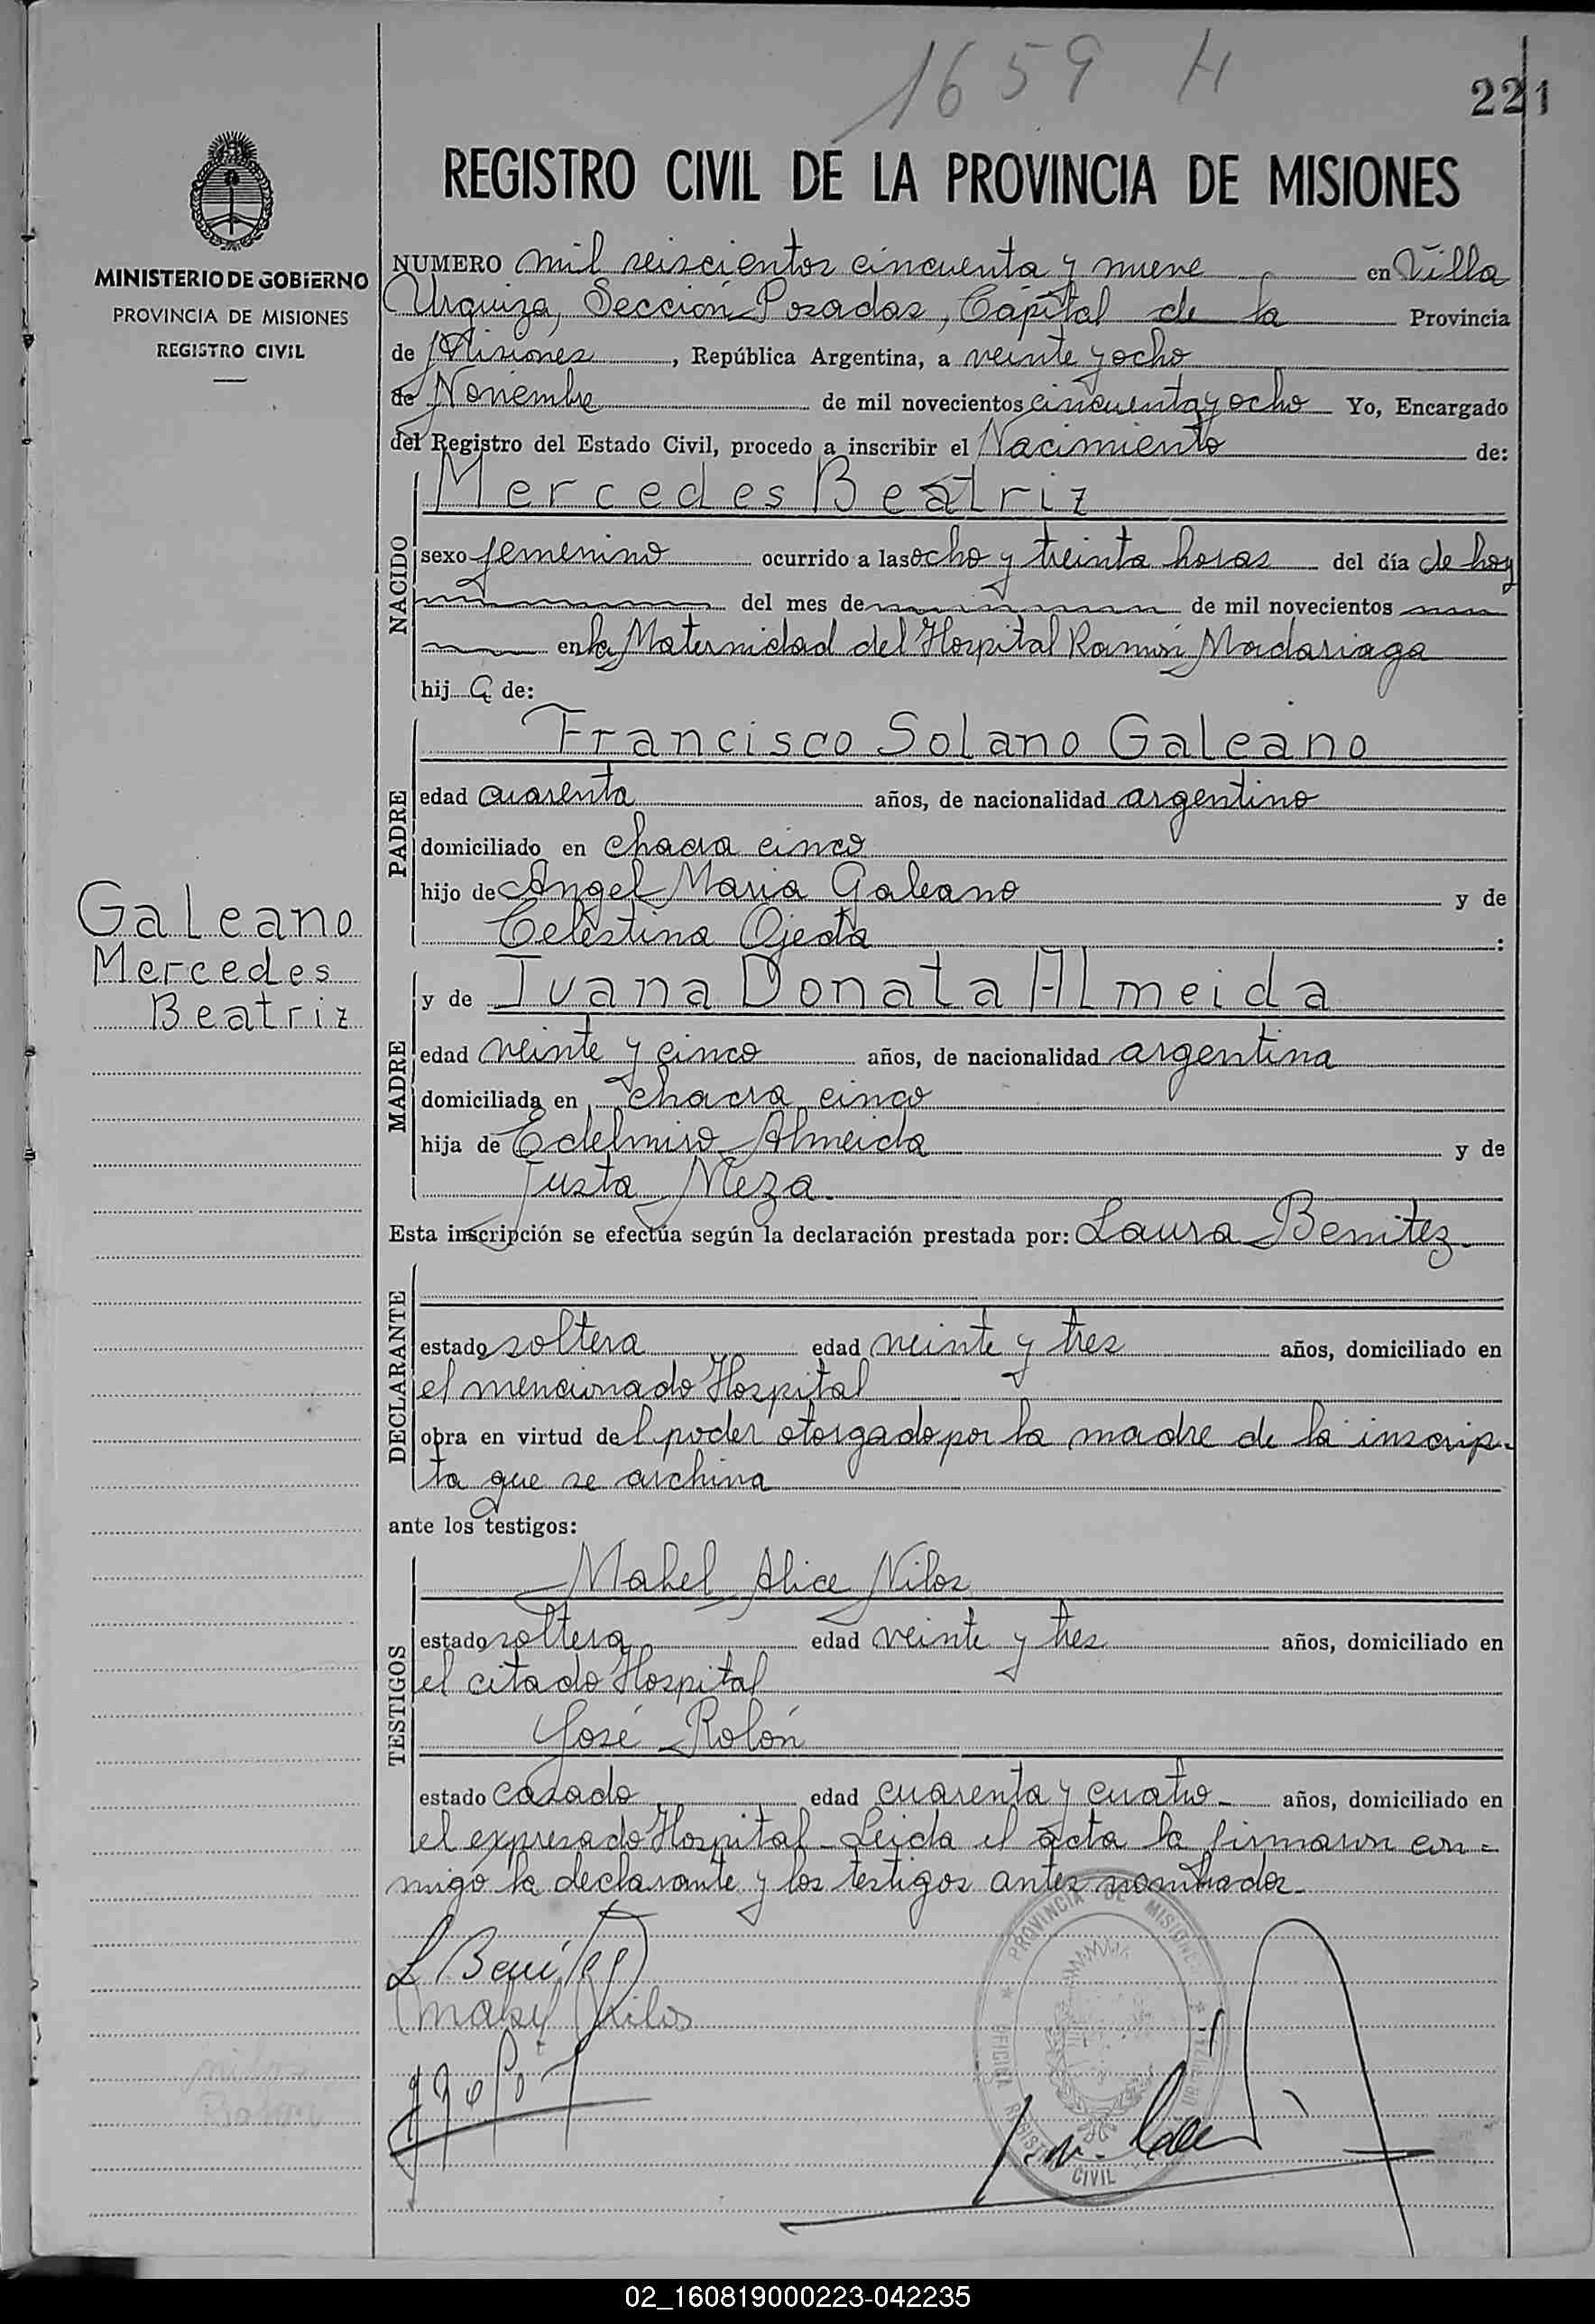 1659 H
221
MINISTERIO DE GOBIERNO
PROVINCIA DE MISIONES
REGISTRO CIVIL
Galeano
Mercedes
Beatriz
REGISTRO CIVIL DE LA PROVINCIA DE MISIONES
NUMERO mil seiscientos cincuenta y nueve en Villa
Urquiza, Sección Posadas, Capital de la Provincia
de Misiones, República Argentina, a veinte y ocho
de Noviembre de mil novecientos cincuenta y ocho Yo, Encargado
del Registro del Estado Civil, procedo a inscribir el Nacimiento de:
NACIDO
Mercedes Beatriz
sexo femenino ocurrido a las ocho y treinta horas del día de hoy
del mes de de mil novecientos
en la Maternidad del Hospital Ramón Madariaga
hija de:
PADRE
Francisco Solano Galeano
edad cuarenta años, de nacionalidad argentino
domiciliado en chacra cinco
hijo de Angel Maria Galeano y de
Celestina Ojeda :
MADRE
y de Juana Donata Almeida
edad veinte y cinco años, de nacionalidad argentina
domiciliada en chacra cinco
hija de Edelmiro Almeida y de
Justa Meza.
Esta inscripción se efectúa según la declaración prestada por: Laura Benitez
DECLARANTE
estado soltera edad veinte y tres años, domiciliado en
el mencionado Hospital
obra en virtud del poder otorgado por la madre de la inscrip-
ta que se archiva
ante los testigos:
TESTIGOS
Mabel Alice Nilos
estado soltera edad veinte y tres años, domiciliado en
el citado Hospital
José Rolón
estado casado edad cuarenta y cuatro años, domiciliado en
el expresado Hospital - Leida el acta la firmaron con=
migo la declarante y los testigos antes nombrados.
L Benitez
Mabel Nilos
PROVINCIA DE MISIONES
REGISTRO CIVIL
02_160819000223-042235